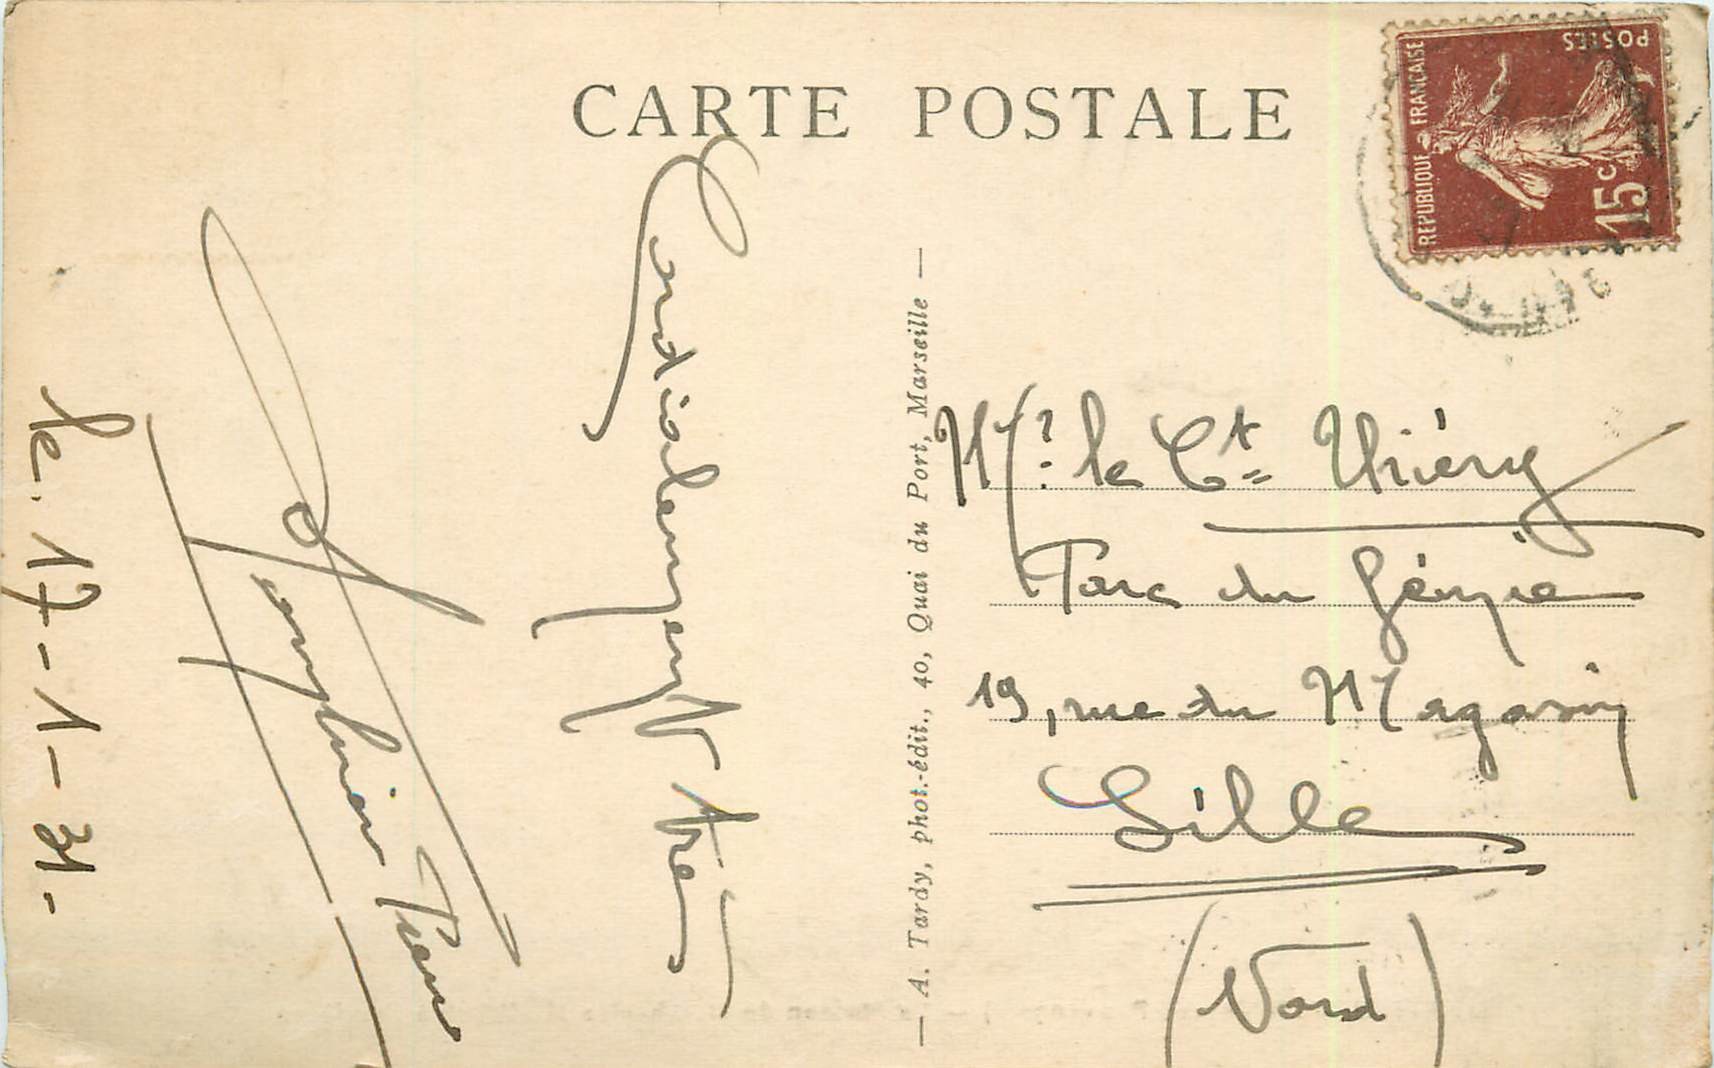 CARTE POSTALE
REPUBLIQUE FRANÇAISE
POSTES
15c
le 17-1-31.
Cordialement
— A. Tardy, phot.-édit., 40, Quai du Port, Marseille —
Mr. le Ct Thiéry
Parc du Génie
19, rue du Magasin
Lille
(Nord)